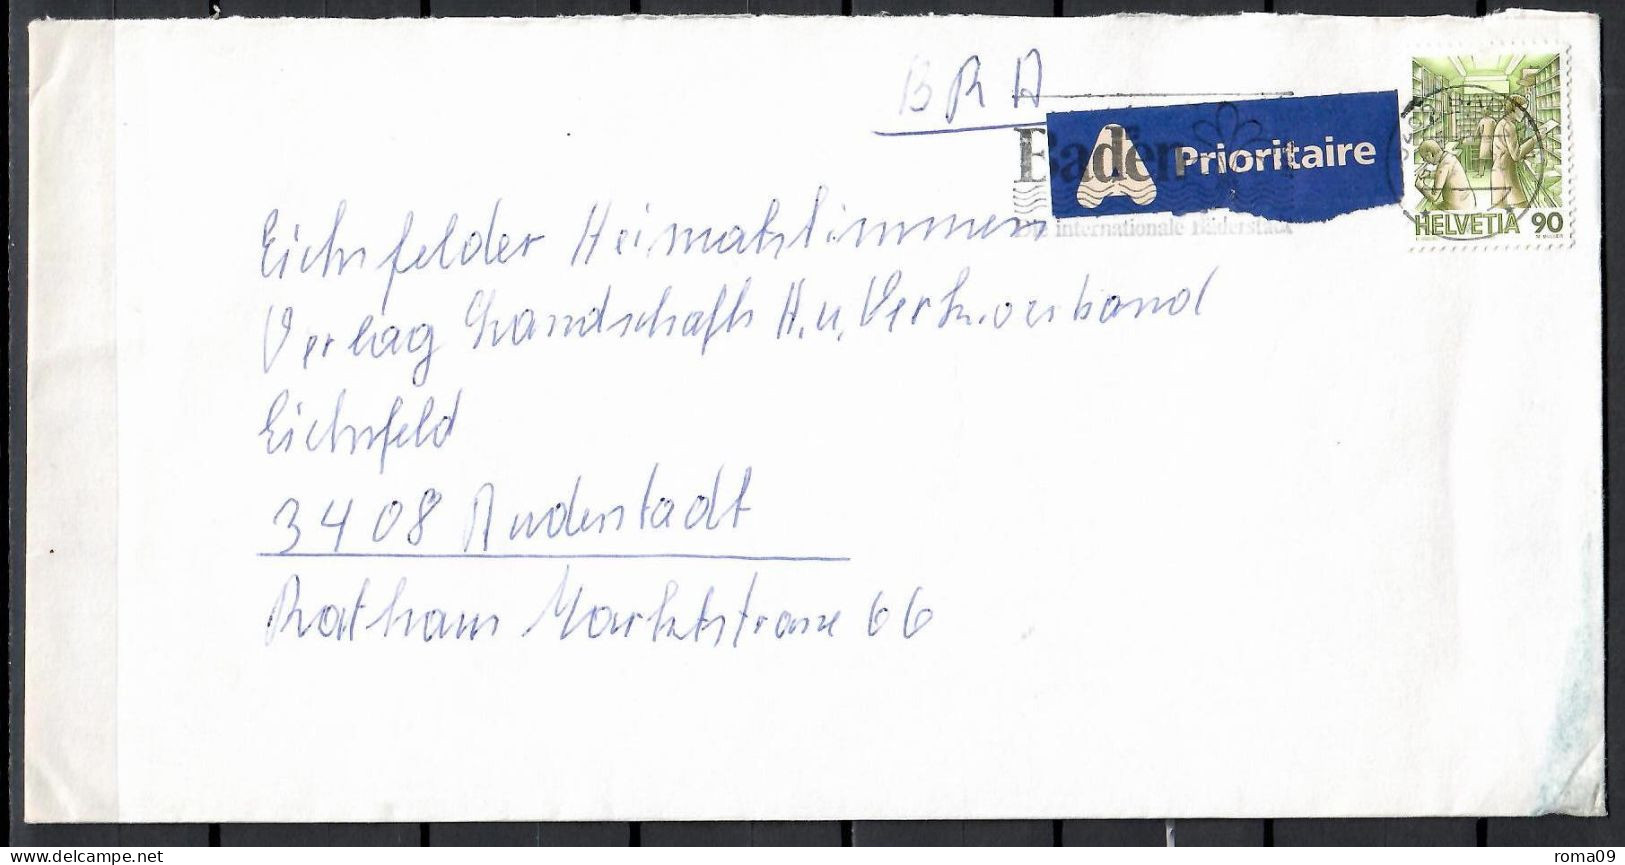 BRA
Baden
Prioritaire
internationale Bäderstadt
HELVETIA 90
Eichsfelder Heimatstimmen
Verlag Landschaft H. u. Verk.verband
Eichsfeld
3408 Duderstadt
Rathaus Marktstrasse 66
delcampe.net
roma09